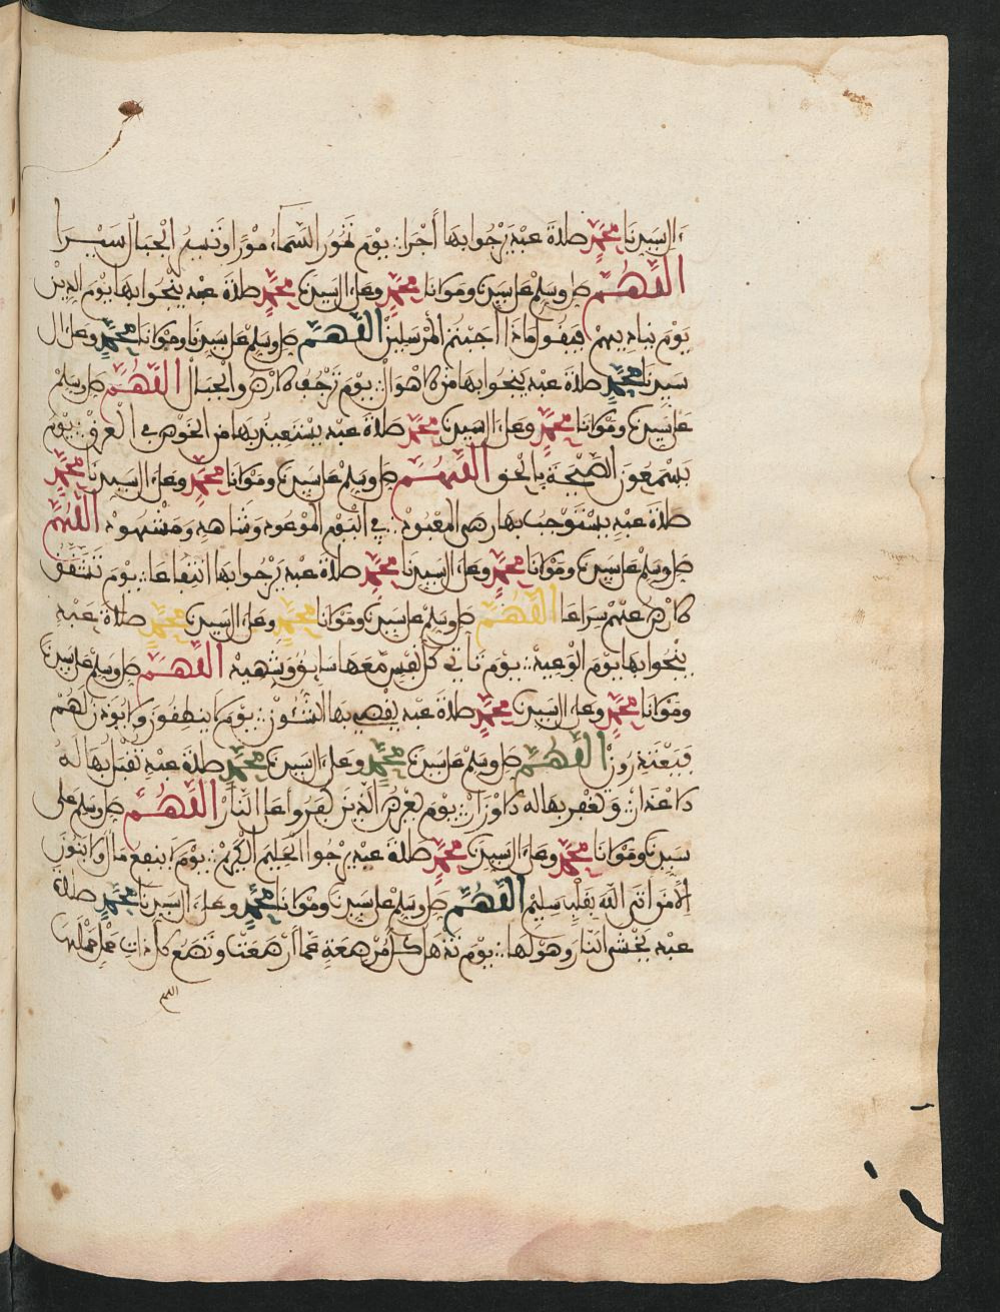 ءال سيدنا محمد صلاة عبد يرجوا بها أجرا يوم تمور السماء مورا وتسير الجبال سيرا
اللهم صل وسلم على سيدنا ومولانا محمد وعلى ءال سيدنا محمد صلاة عبد ينجوا بها يوم الدين
يوم يناديهم فيقول ماذا أجبتم المرسلين اللهم صل وسلم على سيدنا ومولانا محمد وعلى ال
سيدنا محمد صلاة عبد ينجوا بها من الاهوال يوم ترجف الارض والجبال اللهم صل وسلم
على سيدنا ومولانا محمد وعلى ءال سيدنا محمد صلاة عبد يستعيذ بها من الخوض في الغرق يوم
يسمعون الصيحة بالحق اللهم صل وسلم على سيدنا ومولانا محمد وعلى ءال سيدنا محمد
صلاة عبد يستوجب بها رضى المعبود في اليوم الموعود وشاهد ومشهود اللهم
صل وسلم على سيدنا ومولانا محمد وعلى ءال سيدنا محمد صلاة عبد يرجوا بها انتفاعا يوم تشقق
الارض عنهم سراعا اللهم صل وسلم على سيدنا ومولانا محمد وعلى ءال سيدنا محمد صلاة عبد
ينجوا بها يوم الوعيد يوم تاتي كل نفس معها سايق وشهيد اللهم صل وسلم على سيدنا
ومولانا محمد وعلى ءال سيدنا محمد صلاة عبد يقضي بها الشئون يوم لا ينطقون ولا يوذن لهم
فيعتذرون اللهم صل وسلم على سيدنا محمد وعلى ءال سيدنا محمد صلاة عبد تقبل بها له
الاعذار وتغفر بها له الاوزار يوم يعرض الذين كفروا على النار اللهم صل وسلم على
سيدنا ومولانا محمد وعلى ءال سيدنا محمد صلاة عبد يرجوا الحليم الكريم يوم لا ينفع مال ولا بنون
الا من اتى الله بقلب سليم اللهم صل وسلم على سيدنا ومولانا محمد وعلى ءال سيدنا محمد صلاة
عبد يخشى النار وهولها يوم تذهل كل مرضعة عما ارضعت وتضع كل ذات حمل حملها
اللهم